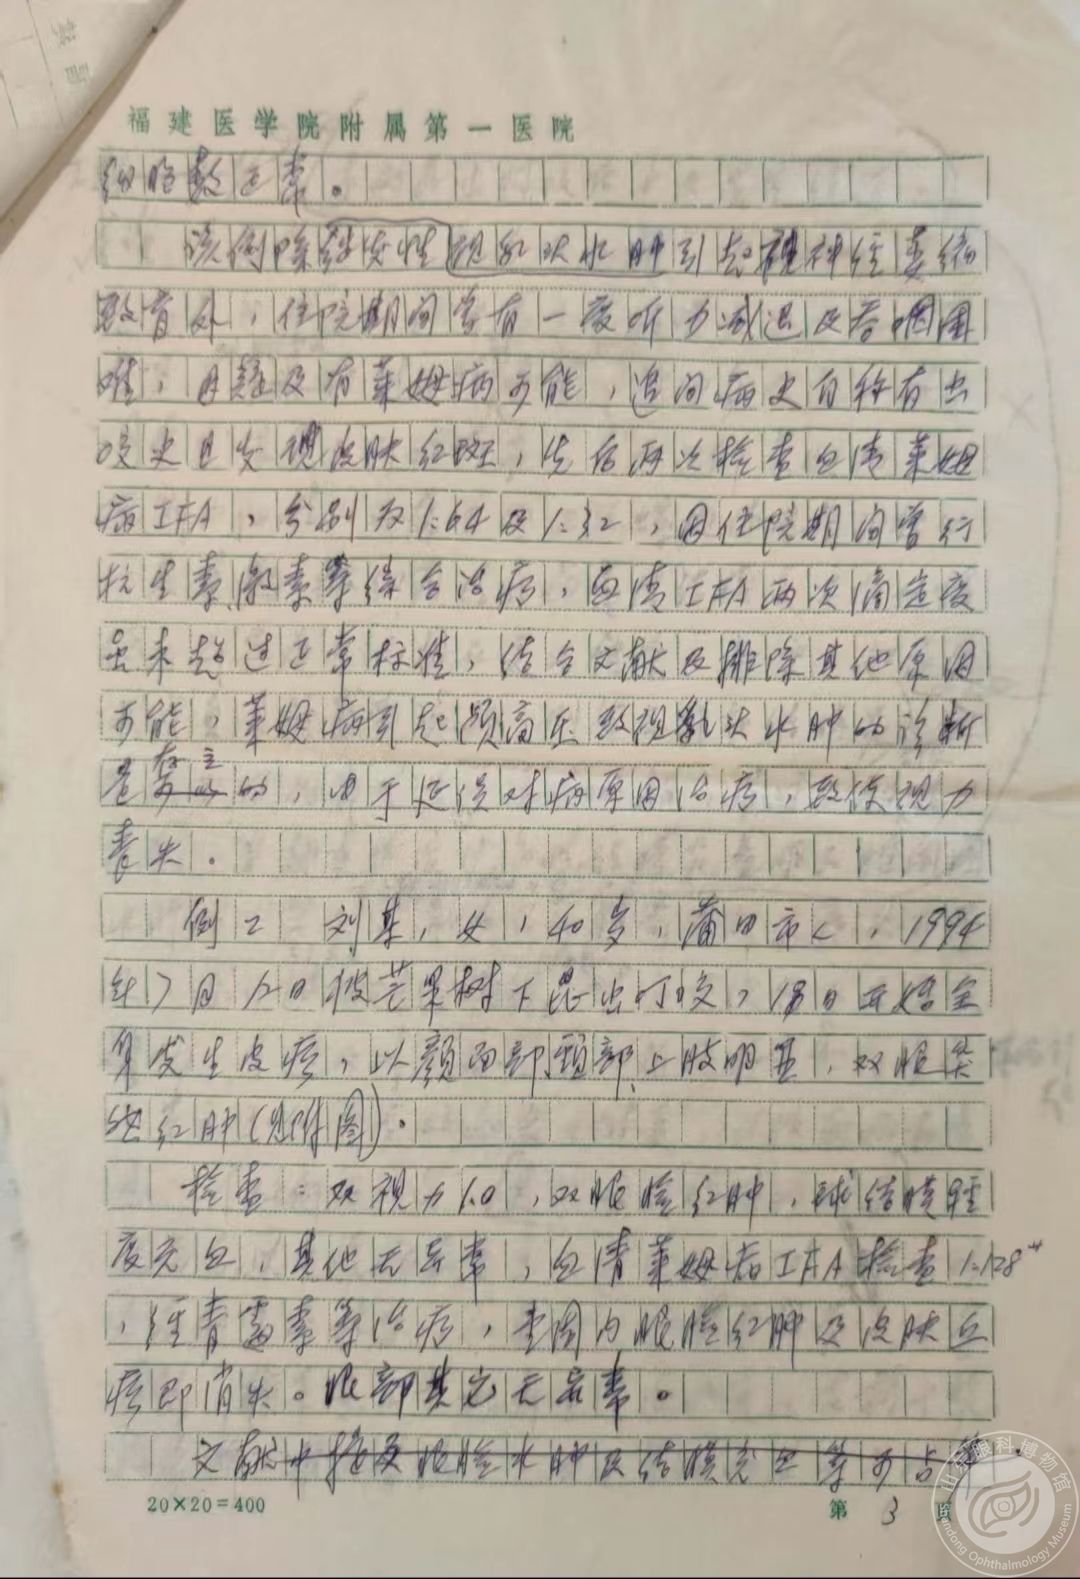 福建医学院附属第一医院
细胞数正常。
该例除继发性视乳头水肿引起视神经萎缩
致盲外，住院期间尝有一度听力减退及吞咽困
难，曾疑及有莱姆病可能，追问病史自称有虫
咬史且发现皮肤红斑，先后两次检查血清莱姆
病IFA，分别为1:64及1:32，因住院期间曾行
抗生素、激素等综合治疗，血清IFA两次滴定度
虽未超过正常标准，结合文献及排除其他原因
可能，莱姆病引起颅高压致视乳头水肿的诊断
是存在的，由于延误对病原因治疗，致使视力
丧失。
例2 刘某，女，40岁，莆田市人，1994
年7月12日被芒果树下昆虫叮咬，18日开始全
身发生皮疹，以颜面部、颈部、上肢明显，双眼突
然红肿(见附图)。
检查：双视力1.0，双眼睑红肿，球结膜轻
度充血，其他无异常，血清莱姆病IFA检查1:128
，经青霉素等治疗，壹周内眼睑红肿及皮肤丘
疹即消失。眼部其它无异常。
文献中 眼睑水肿及结膜充血等可占
20×20=400
第 3 页
山东眼科博物馆
Shandong Ophthalmology Museum